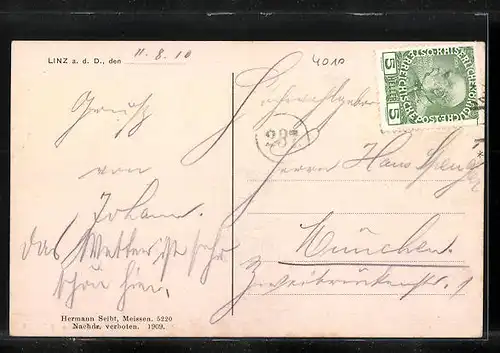 LINZ a. d. D., den 11. 8. 10
4010
Gruß
von
Johann.
Das Wetter ist sehr
schön hier.
Hermann Seibt, Meissen. 5220
Nachdr. verboten. 1909.
5
5
Hochwohlgeboren
Herrn Hans
München.
Zweibrückenstr.